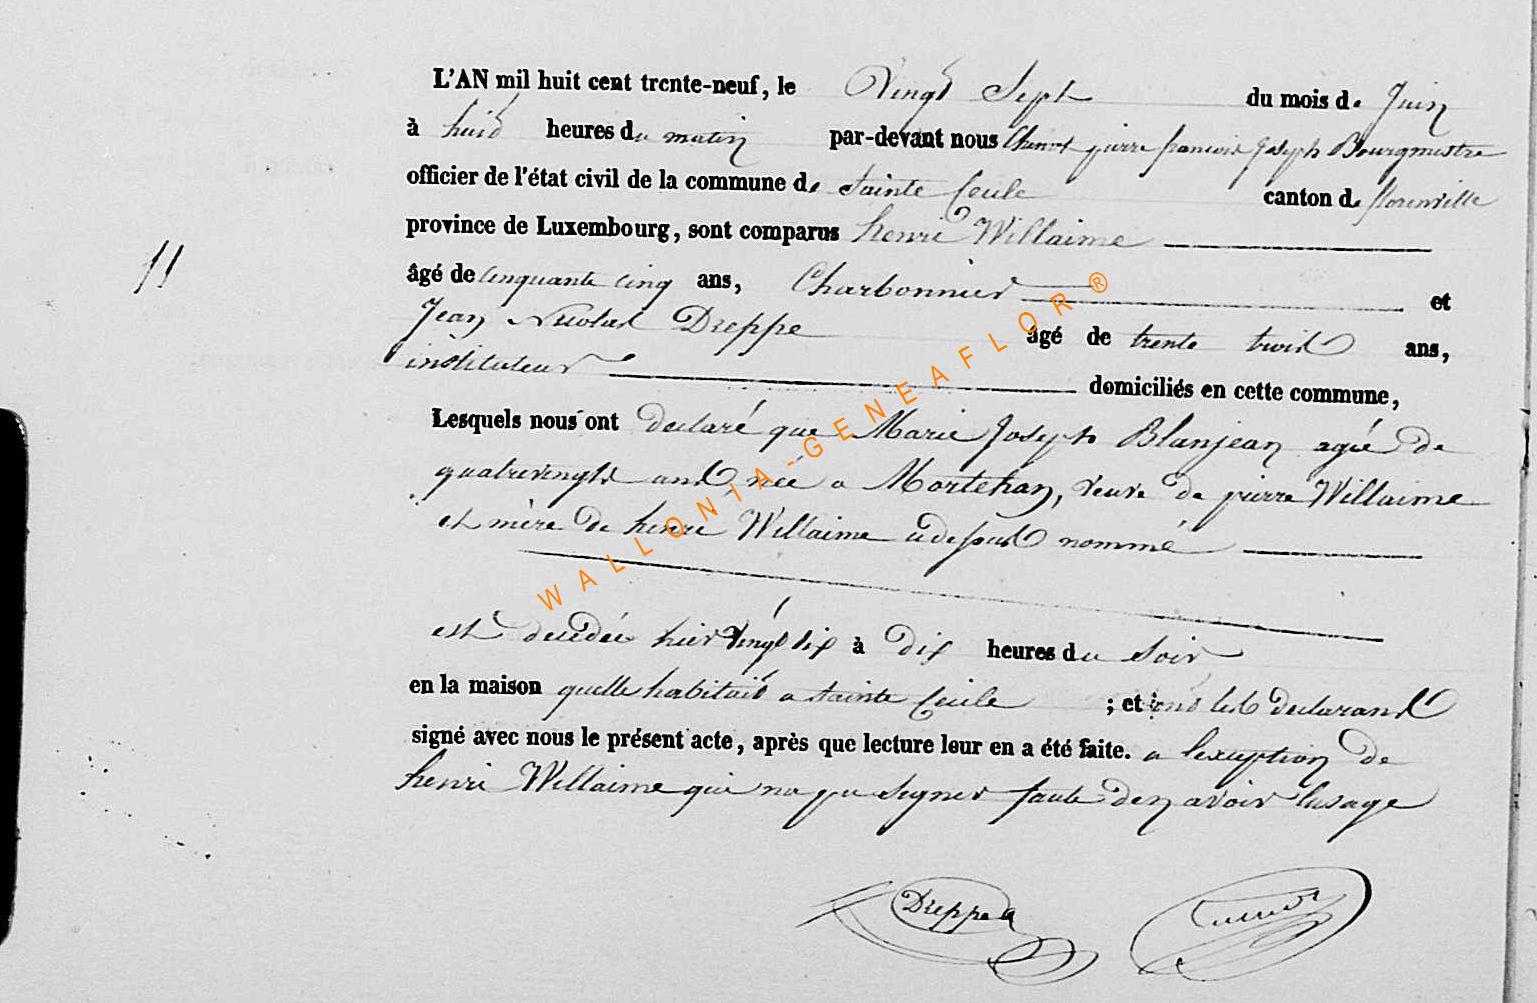 L'AN mil huit cent trente-neuf, le Vingt Sept du mois de Juin
à huit heures du matin par-devant nous pierre francois Joseph Bourgmestre
officier de l'état civil de la commune de Sainte Cecile canton de florenville
province de Luxembourg, sont comparus henri Willaime
11
âgé de Cinquante cinq ans, Charbonnier et
Jean Nicolas Dreppe âgé de trente trois ans,
instituteur domiciliés en cette commune,
Lesquels nous ont declaré que Marie Joseph Blanjean agée de
quatrevingts ans, née a Mortehan, veuve de pierre Willaime
et mère de henri Willaime cidessus nommé
est decedée hier Vingt six à dix heures du Soir
en la maison quelle habitait a Sainte Cecile ; et les declarans
signé avec nous le présent acte, après que lecture leur en a été faite. a lexception de
henri Willaime qui na pu Signer faute den avoir lusage
Dreppe
WALLONIA-GENEAFLOR®